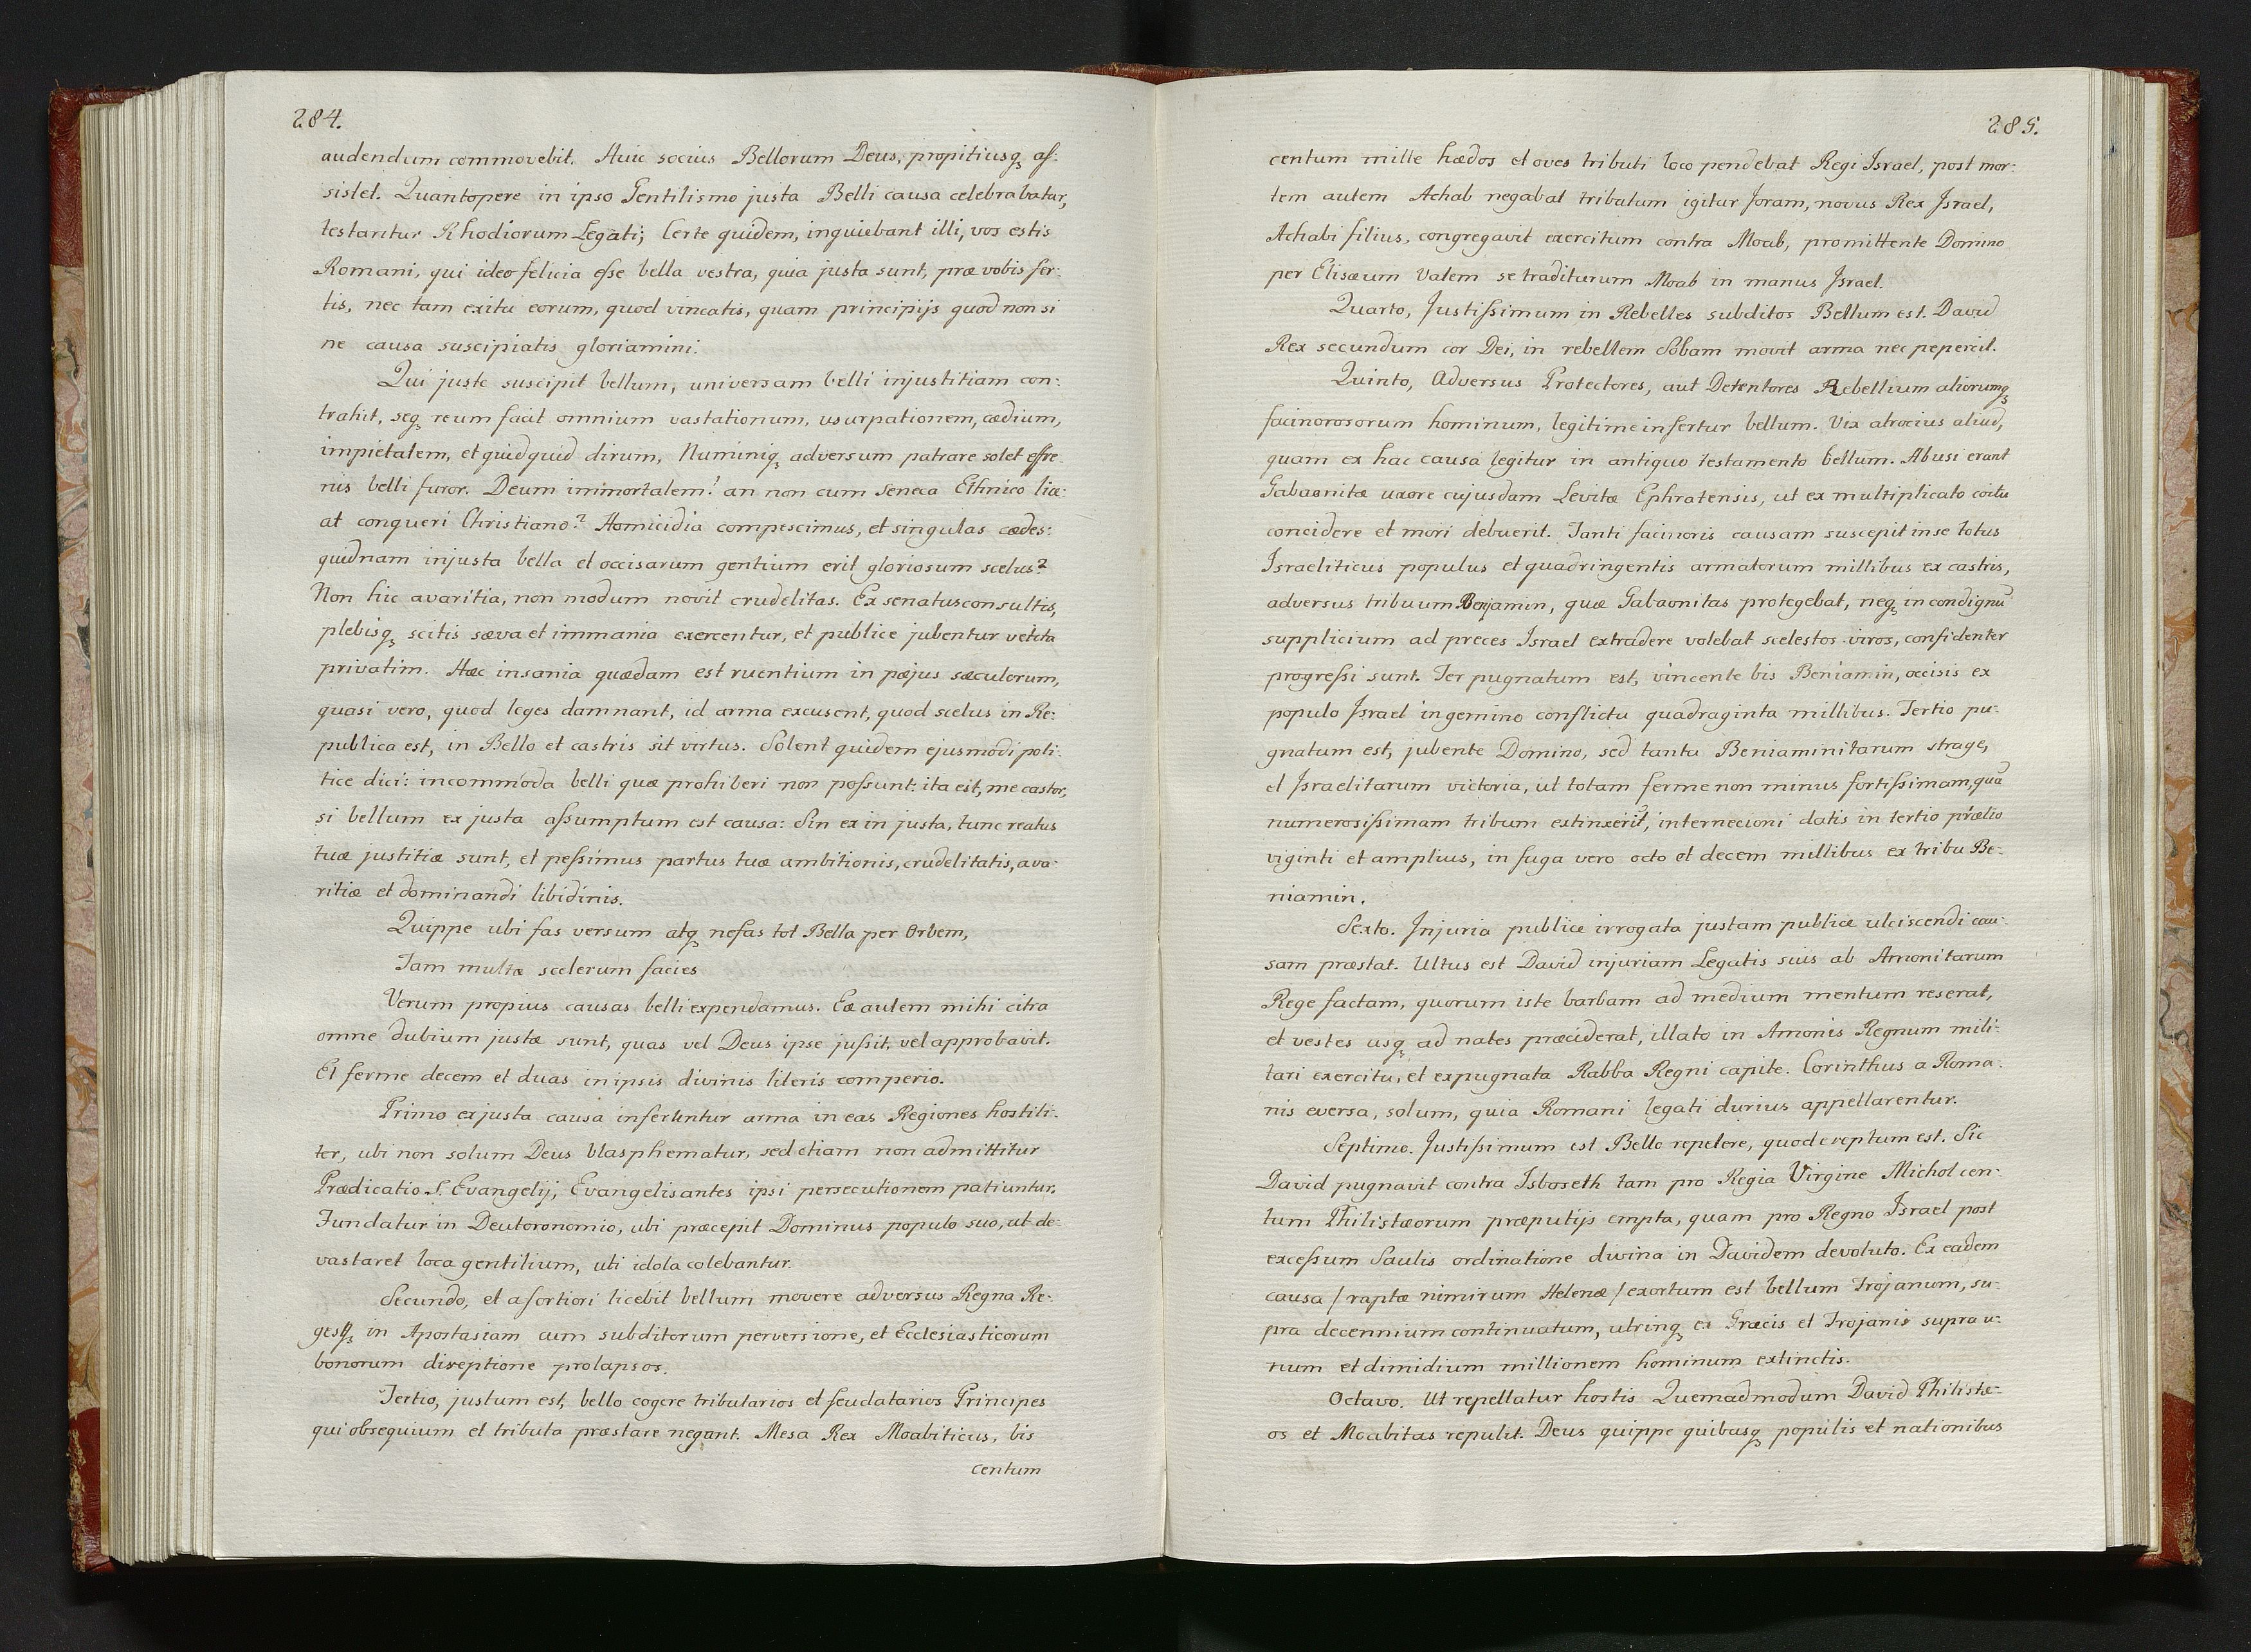 284.
audendum commovebit. Huic socius Bellorum Deus, propitiusq₃ aſ:
sistet. Quantopere in ipso Gentilismo justa Belli causa celebrabatur,
testantur Rhodiorum Legati; Certe quidem, inquiebant illi, vos estis
Romani, qui ideo felicia eſse bella vestra, quia justa sunt, præ vobis fer:
tis, nec tam exitu eorum, quod vincatis, quam principijs quod non si
ne causa suscipiatis gloriamini.
Qui juste suscipit bellum, universam belli injustitiam con:
trahit, seq₃ reum facit omnium vastationum, usurpationem, cædium,
impietatem, et quidquid dirum, Numiniq₃ adversum patrare solet effre:
nis belli furor. Deum immortalem! an non cum Seneca Ethnico lice:
at conqueri Christiano? Homicidia compescimus, et singulas cædes:
quidnam injusta bella et occisarum gentium erit gloriosum scelus?
Non hic avaritia, non modum novit crudelitas. Ex senatusconsultis,
plebisq₃ scitis sæva et immania exercentur, et publice jubentur vetita
privatim. Hæc insania quædam est ruentium in pejus sæculorum,
quasi vero, quod leges damnant, id arma excusent, quod scelus in Re:
publica est, in Bello et castris sit virtus. Solent quidem ejusmodi poli:
tice dici: incommoda belli quæ prohiberi non poſsunt: ita est, me castor,
si bellum ex justa aſsumptum est causa: Sin ex in justa, tunc reatus
tuæ justitiæ sunt, et peſsimus partus tuæ ambitionis, crudelitatis, ava:
ritiæ et dominandi libidinis.
Quippe ubi fas versum atq₃ nefas tot Bella per Orbem,
Tam multæ scelerum facies
Verum propius causas belli expendamus. Eæ autem mihi citra
omne dubium justæ sunt, quas vel Deus ipse juſsit, vel approbavit.
Et ferme decem et duas in ipsis divinis literis comperio.
Primo ex justa causa inferuntur arma in eas Regiones hostili:
ter, ubi non solum Deus blasphematur, sed etiam non admittitur
Prædicatio S. Evangelij, Evangelisantes ipsi persecutionem patiuntur.
Fundatur in Deutoronomio, ubi præcepit Dominus populo suo, ut de:
vastaret loca gentilium, ubi idola colebantur.
Secundo, et a fortiori licebit bellum movere adversus Regna Re:
gesq₃ in Apostasiam cum subditorum perversione, et Ecclesiasticorum
bonorum direptione prolapsos.
Tertio, justum est, bello cogere tributarios et feudatarios Principes
qui obsequium et tributa præstare negant. Mesa Rex Moabiticus, bis
centum
285.
centum mille hædos et oves tributi loco pendebat Regi Israel, post mor:
tem autem Achab negabat tributum igitur Joram, novus Rex Israel,
Achabi filius, congregavit exercitum contra Moab, promittente Domino
per Elisæum Vatem se traditurum Moab in manus Israel.
Quarto, Justiſsimum in Rebelles subditos Bellum est. David
Rex secundum cor Dei, in rebellem Sobam movit arma nec pepercit.
Quinto, Adversus Protectores, aut Detentores Rebellium aliorumq₃
facinorosorum hominum, legitime infertur bellum. Vix atrocius aliud,
quam ex hac causa legitur in antiquo testamento bellum. Abusi erant
Gabaonitæ uxore cujusdam Levitæ Ephratensis, ut ex multiplicato coitu
concidere et mori debuerit. Tanti facinoris causam suscepit in se totus
Israeliticus populus et quadringentis armatorum millibus ex castris,
adversus tribuum Benjamin, quæ Gabaonitas protegebat, neq₃ in condignū
supplicium ad preces Israel extradere volebat scelestos viros, confidenter
progreſsi sunt. Ter pugnatum est, vincente bis Beniamin, occisis ex
populo Israel in gemino conflictu quadraginta millibus. Tertio pu:
gnatum est, jubente Domino, sed tanta Beniaminitarum strage,
et Israelitarum victoria, ut totam ferme non minus fortiſsimam, quā
numerosiſsimam tribum extinxerit, internecioni datis in tertio prælio
viginti et amplius, in fuga vero octo et decem millibus ex tribu Be:
niamin.
Sexto. Injuria publice irrogata justam publice ulciscendi cau:
sam præstat. Ultus est David injuriam Legatis suis ab Amonitarum
Rege factam, quorum iste barbam ad medium mentum reserat,
et vestes usq₃ ad nates præciderat, illato in Amonis Regnum mili:
tari exercitu, et expugnata Rabba Regni capite. Corinthus a Roma:
nis eversa, solum, quia Romani legati durius appellarentur.
Septimo. Justiſsimum est Bello repetere, quod ereptum est. Sic
David pugnavit contra Isboseth tam pro Regia Virgine Michol cen:
tum Philistæorum præputijs empta, quam pro Regno Israel post
exceſsum Saulis ordinatione divina in Davidem devoluto. Ex eadem
causa / raptæ nimirum Helenæ / exortum est bellum Trojanum, su:
pra decennium continuatum, utrinq₃ ex Græcis et Trojanis supra u:
num et dimidium millionem hominum extinctis.
Octavo. Ut repellatur hostis Quemadmodum David Philistæ:
os et Moabitas repulit. Deus quippe quibusq₃ populis et nationibus